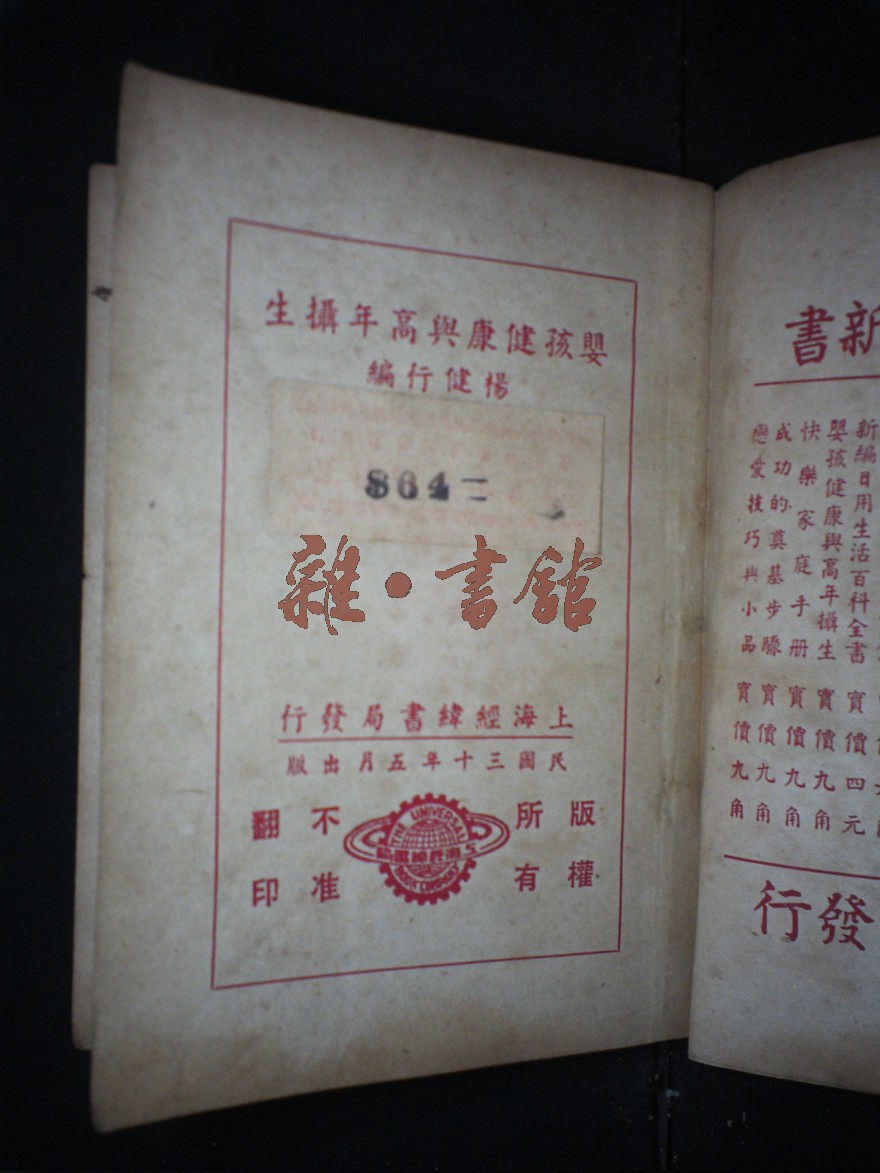 嬰孩健康與高年攝生
楊健行編
864二
雜•書館
上海經緯書局發行
民國三十年五月出版
版權所有
不准翻印
THE UNIVERSAL
BOOK COMPANY
新書
新編日用生活百科全書 實價四元
嬰孩健康與高年攝生 實價九角
快樂家庭手册 實價九角
成功的奠基步驟 實價九角
戀愛技巧與小品 實價九角
發行